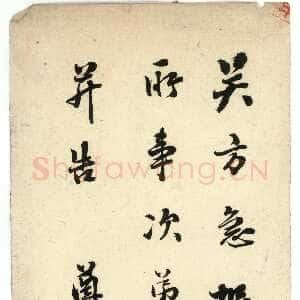 吴方急
所事次第
并告尊
Shufawang.CN